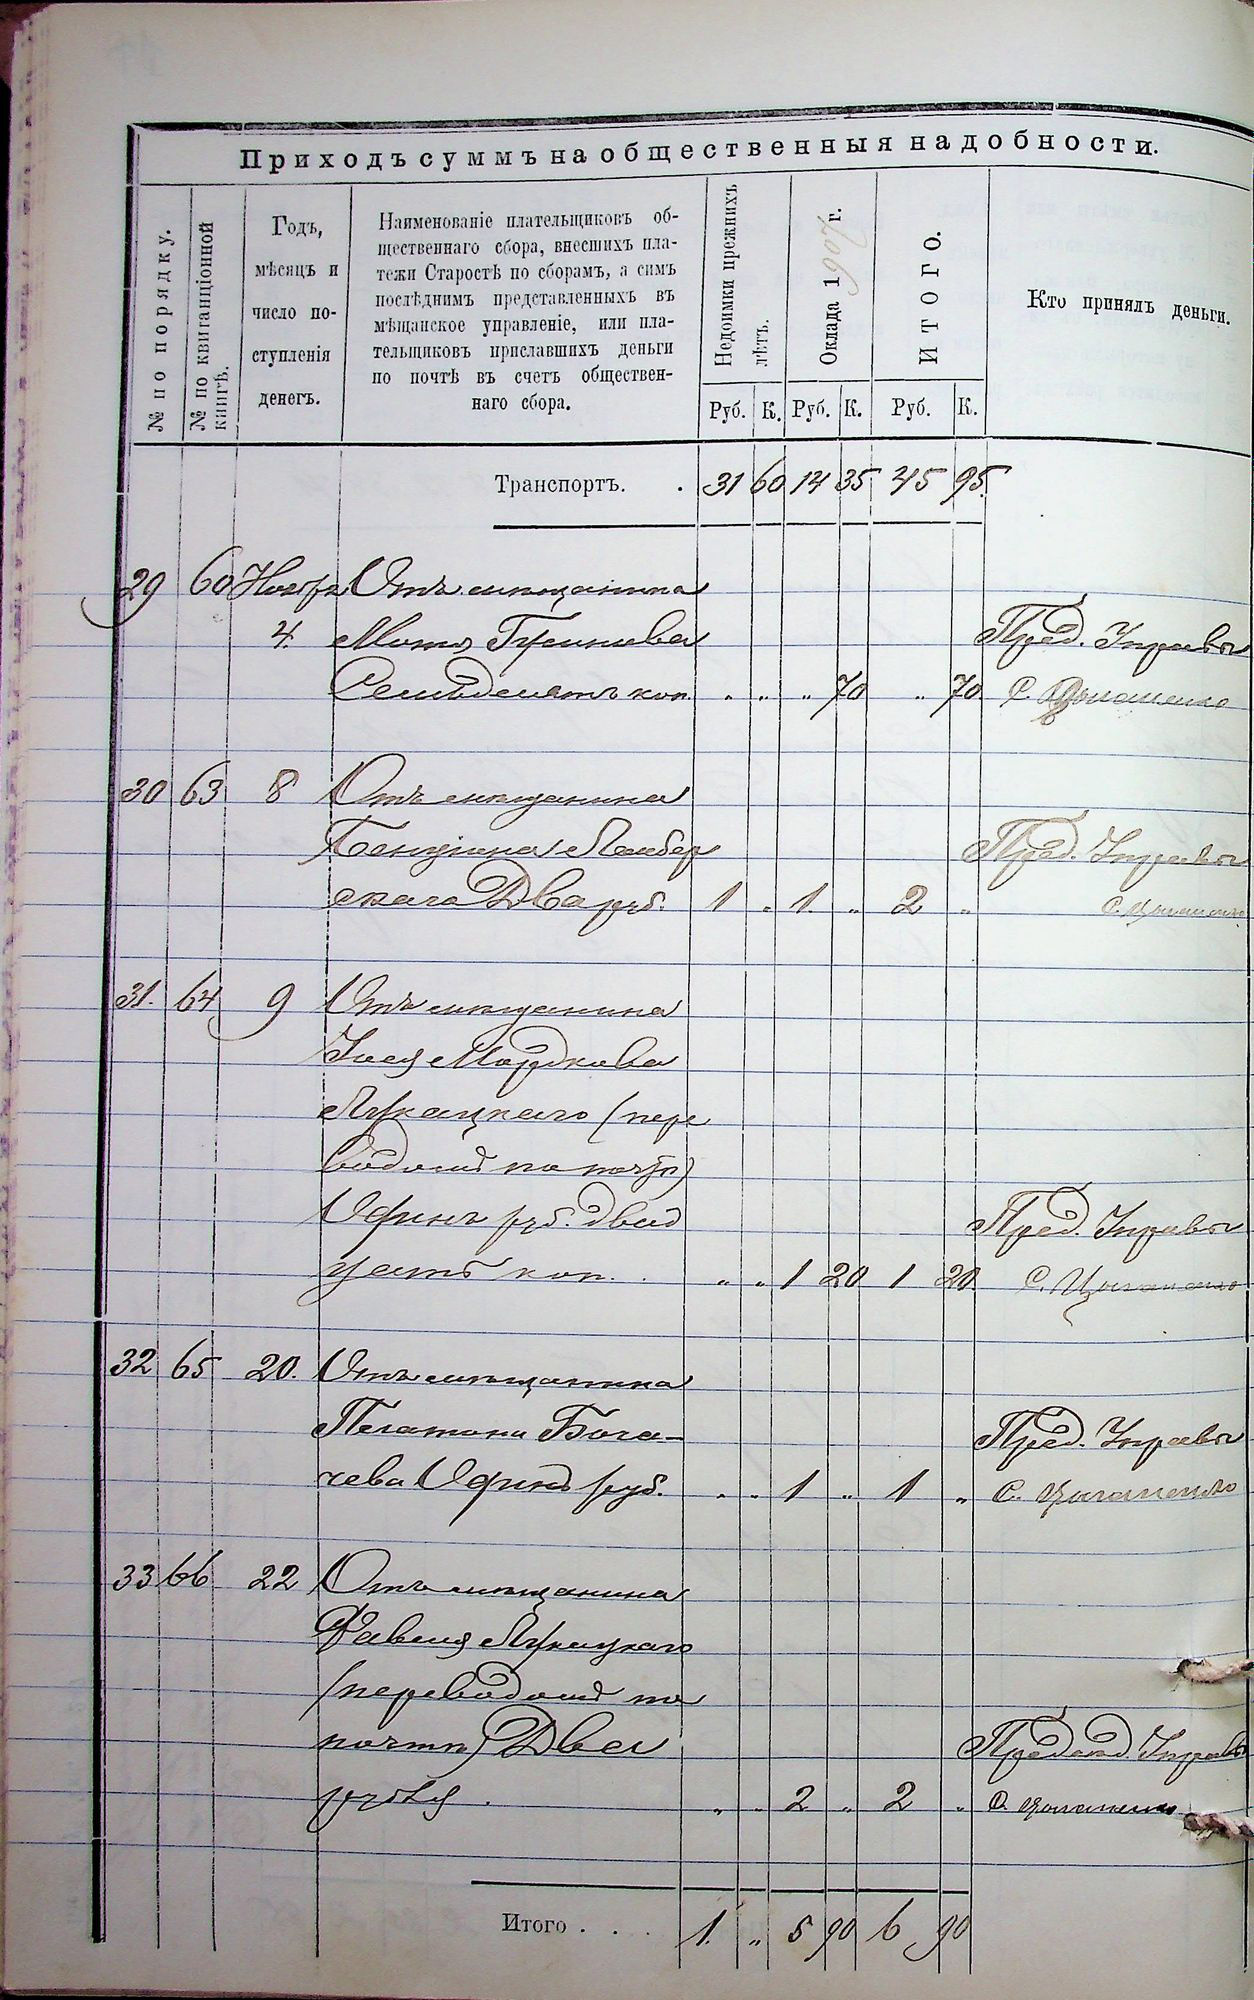 Приходъ суммъ на общественныя надобности.
№ по порядку.
№ по квитанціонной
книгѣ.
Годъ,
мѣсяцъ и
число по-
ступленія
денегъ.
Наименованіе плательщиковъ об-
щественнаго сбора, внесшихъ пла-
тежи Старостѣ по сборамъ, а симъ
послѣднимъ представленныхъ въ
мѣщанское управленіе, или пла-
тельщиковъ приславшихъ деньги
по почтѣ въ счетъ обществен-
наго сбора.
Недоимки прежнихъ
лѣтъ.
Оклада 1906 г.
ИТОГО.
Кто принялъ деньги.
Руб. К. Руб. К. Руб. К.
Транспортъ. . 31 60 14 35 45 95.
29 60 Ноября Отъ мѣщанина
4. Пред. Управы
Семьдесятъ коп. " " " 70 " 70 С. Цыганенко
30 63 8 Отъ мѣщанина
Пред. Управы
скаго Два руб. 1 " 1. " 2 " С. Цыганенко
31. 64 9 Отъ мѣщанина
Мордкова
Лукацкаго (пере
водомъ по почтѣ)
Одинъ руб. двад Пред. Управы
цать коп. . " " 1 20 1 20. С. Цыганенко
32 65 20. Отъ мѣщанина
Платона Бога- Пред. Управы
чева Одинъ руб. " " 1 " 1 " С. Цыганенко
33 66 22 Отъ мѣщанина
Лукацкаго
(переводомъ по
почтѣ) Два Предсѣд. Управы
рубля . " " 2 " 2 " С. Цыганенко
Итого . . . 1. " 5 90 6 90